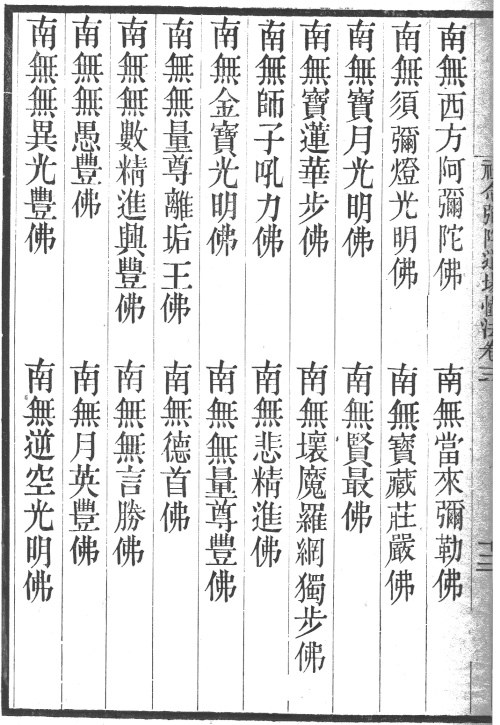 南無西方阿彌陀佛　南無當來彌勒佛
南無須彌燈光明佛　南無寶藏莊嚴佛
南無寶月光明佛　南無賢最佛
南無寶蓮華步佛　南無壞魔羅網獨步佛
南無師子吼力佛　南無悲精進佛
南無金寶光明佛　南無無量尊豐佛
南無無量尊離垢王佛　南無德首佛
南無無數精進興豐佛　南無無言勝佛
南無無愚豐佛　南無月英豐佛
南無無異光豐佛　南無逆空光明佛